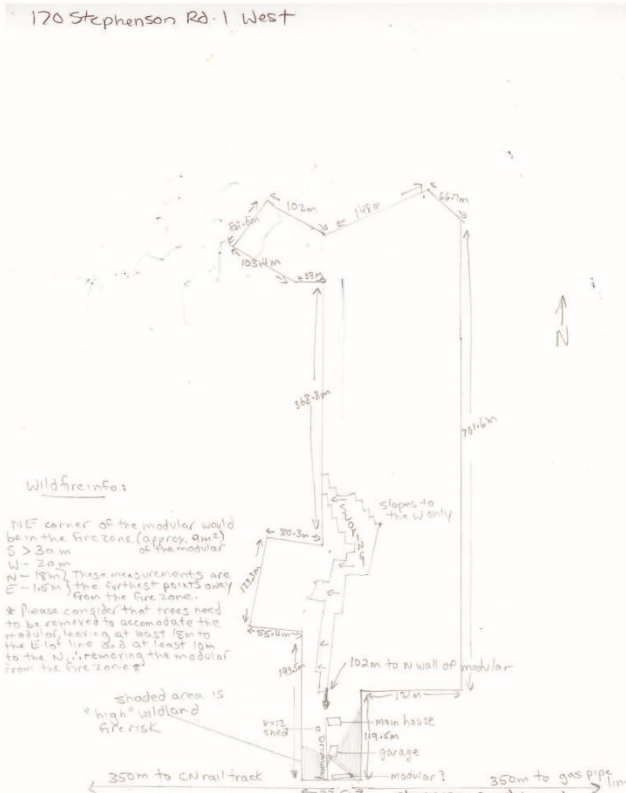 170 Stephenson Rd. 1 West
102m
148m
66.7m
103.4m
N
368.8m
701.6m
Wildfire info:
slopes to
the W only
SLOPING
NE corner of the modular would
be in the fire zone (approx. 9m²)
of the modular
S > 30 m
W - 20m
N - 18m } These measurements are
E - 1.5m } the furthest points away
from the fire zone.
* Please consider that trees need
to be removed to accomodate the
modular, leaving at least 18m to
the E lot line and at least 10m
to the N, ∴ removing the modular
from the fire zone *
80.3m
55.4m
193.5m
102m to N wall of modular
121m
119.5m
shaded area is
"high" wildland
fire risk
shed
Driveway
main house
garage
modular?
350m to CN rail track
350m to gas pipe
line